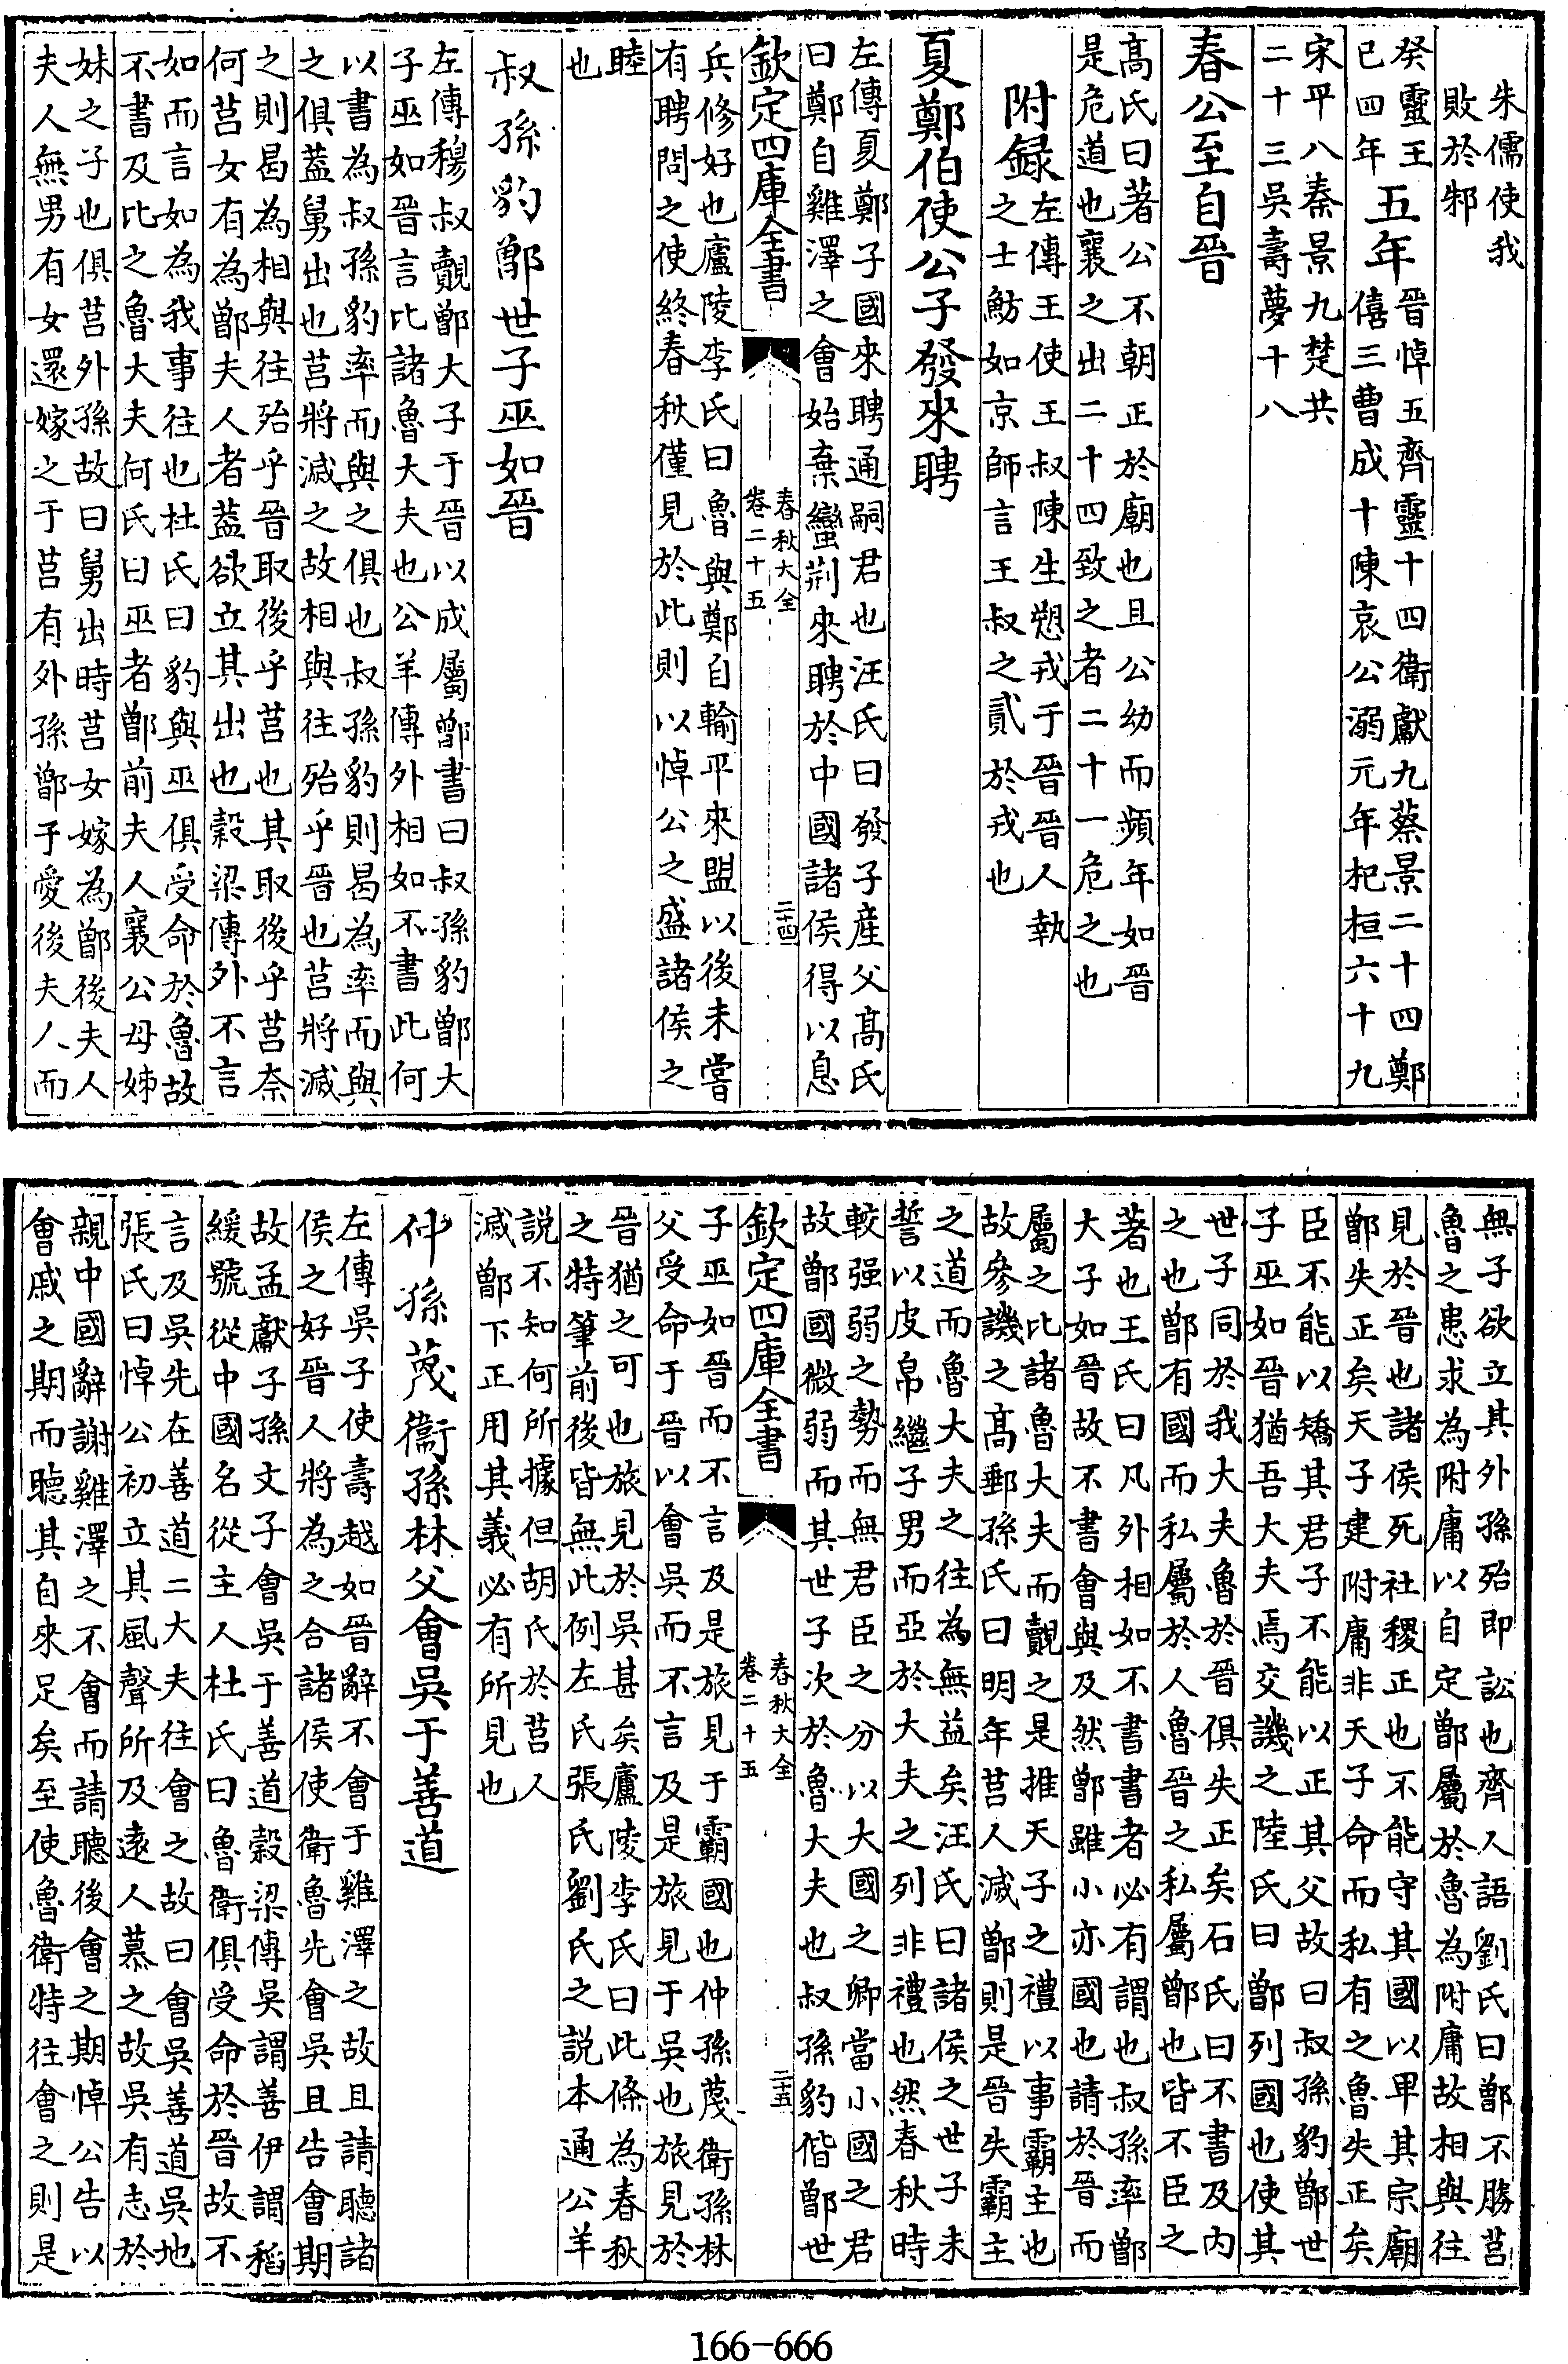 朱儒使我
敗於邾
癸靈王
巳四年
五年
晉悼五齊靈十四衛獻九蔡景二十四鄭
僖三曹成十陳哀公溺元年杞桓六十九
宋平八秦景九楚共
二十三吳壽夢十八
春公至自晉
髙氏曰著公不朝正於廟也且公幼而頻年如晉
是危道也襄之出二十四致之者二十一危之也
附録
左傳王使王叔陳生愬戎于晉晉人執
之士魴如京師言王叔之貳於戎也
夏鄭伯使公子發來聘
左傳夏鄭子國來聘通嗣君也汪氏曰發子産父髙氏
曰鄭自雞澤之㑹始棄蠻荆來聘於中國諸侯得以息
欽定四庫全書
春秋大全
卷二十五
二十四
兵修好也廬陵李氏曰魯與鄭自輸平來盟以後未嘗
有聘問之使終春秋僅見於此則以悼公之盛諸侯之
睦
也
叔孫豹鄫世子巫如晉
左傳穆叔覿鄫大子于晉以成屬鄫書曰叔孫豹鄫大
子巫如晉言比諸魯大夫也公羊傳外相如不書此何
以書為叔孫豹率而與之俱也叔孫豹則曷為率而與
之俱葢舅出也莒將滅之故相與往殆乎晉也莒將滅
之則曷為相與往殆乎晉取後乎莒也其取後乎莒奈
何莒女有為鄫夫人者葢欲立其出也榖梁傳外不言
如而言如為我事往也杜氏曰豹與巫俱受命於魯故
不書及比之魯大夫何氏曰巫者鄫前夫人襄公母姊
妹之子也俱莒外孫故曰舅出時莒女嫁為鄫後夫人
夫人無男有女還嫁之于莒有外孫鄫子愛後夫人而
無子欲立其外孫殆即訟也齊人語劉氏曰鄫不勝莒
魯之患求為附庸以自定鄫屬於魯為附庸故相與往
見於晉也諸侯死社稷正也不能守其國以畀其宗廟
鄫失正矣天子建附庸非天子命而私有之魯失正矣
臣不能以矯其君子不能以正其父故曰叔孫豹鄫世
子巫如晉猶吾大夫焉交譏之陸氏曰鄫列國也使其
世子同於我大夫魯於晉俱失正矣石氏曰不書及内
之也鄫有國而私屬於人魯晉之私屬鄫也皆不臣之
著也王氏曰凡外相如不書書者必有謂也叔孫率鄫
大子如晉故不書㑹與及然鄫雖小亦國也請於晉而
屬之比諸魯大夫而覿之是推天子之禮以事霸主也
故參譏之髙郵孫氏曰明年莒人滅鄫則是晉失霸主
之道而魯大夫之往為無益矣汪氏曰諸侯之世子未
誓以皮帛繼子男而亞於大夫之列非禮也然春秋時
較强弱之勢而無君臣之分以大國之卿當小國之君
故鄫國微弱而其世子次於魯大夫也叔孫豹偕鄫世
欽定四庫全書
春秋大全
卷二十五
二十五
子巫如晉而不言及是旅見于霸國也仲孫蔑衛孫林
父受命于晉以㑹吳而不言及是旅見于吳也旅見於
晉猶之可也旅見於吳甚矣廬陵李氏曰此條為春秋
之特筆前後皆無此例左氏張氏劉氏之説本通公羊
説不知何所據但胡氏於莒人
滅鄫下正用其義必有所見也
仲孫蔑衞孫林父㑹吳于善道
左傳吳子使壽越如晉辭不㑹于雞澤之故且請聽諸
侯之好晉人將為之合諸侯使衛魯先㑹吳且告㑹期
故孟獻子孫文子㑹吳于善道榖梁傳吳謂善伊謂稻
緩號從中國名從主人杜氏曰魯衛俱受命於晉故不
言及吳先在善道二大夫往㑹之故曰㑹吳善道吳地
張氏曰悼公初立其風聲所及逺人慕之故吳有志於
親中國辭謝雞澤之不㑹而請聽後㑹之期悼公告以
㑹戚之期而聽其自來足矣至使魯衛特往㑹之則是
166-666